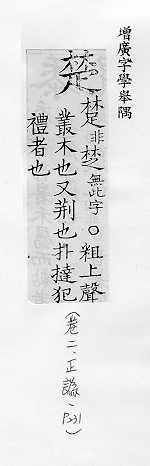 增廣字學舉隅
楚 楚非椘無此字〇粗上聲
叢木也又荆也扑撻犯
禮者也
(卷二、正譌、P331)